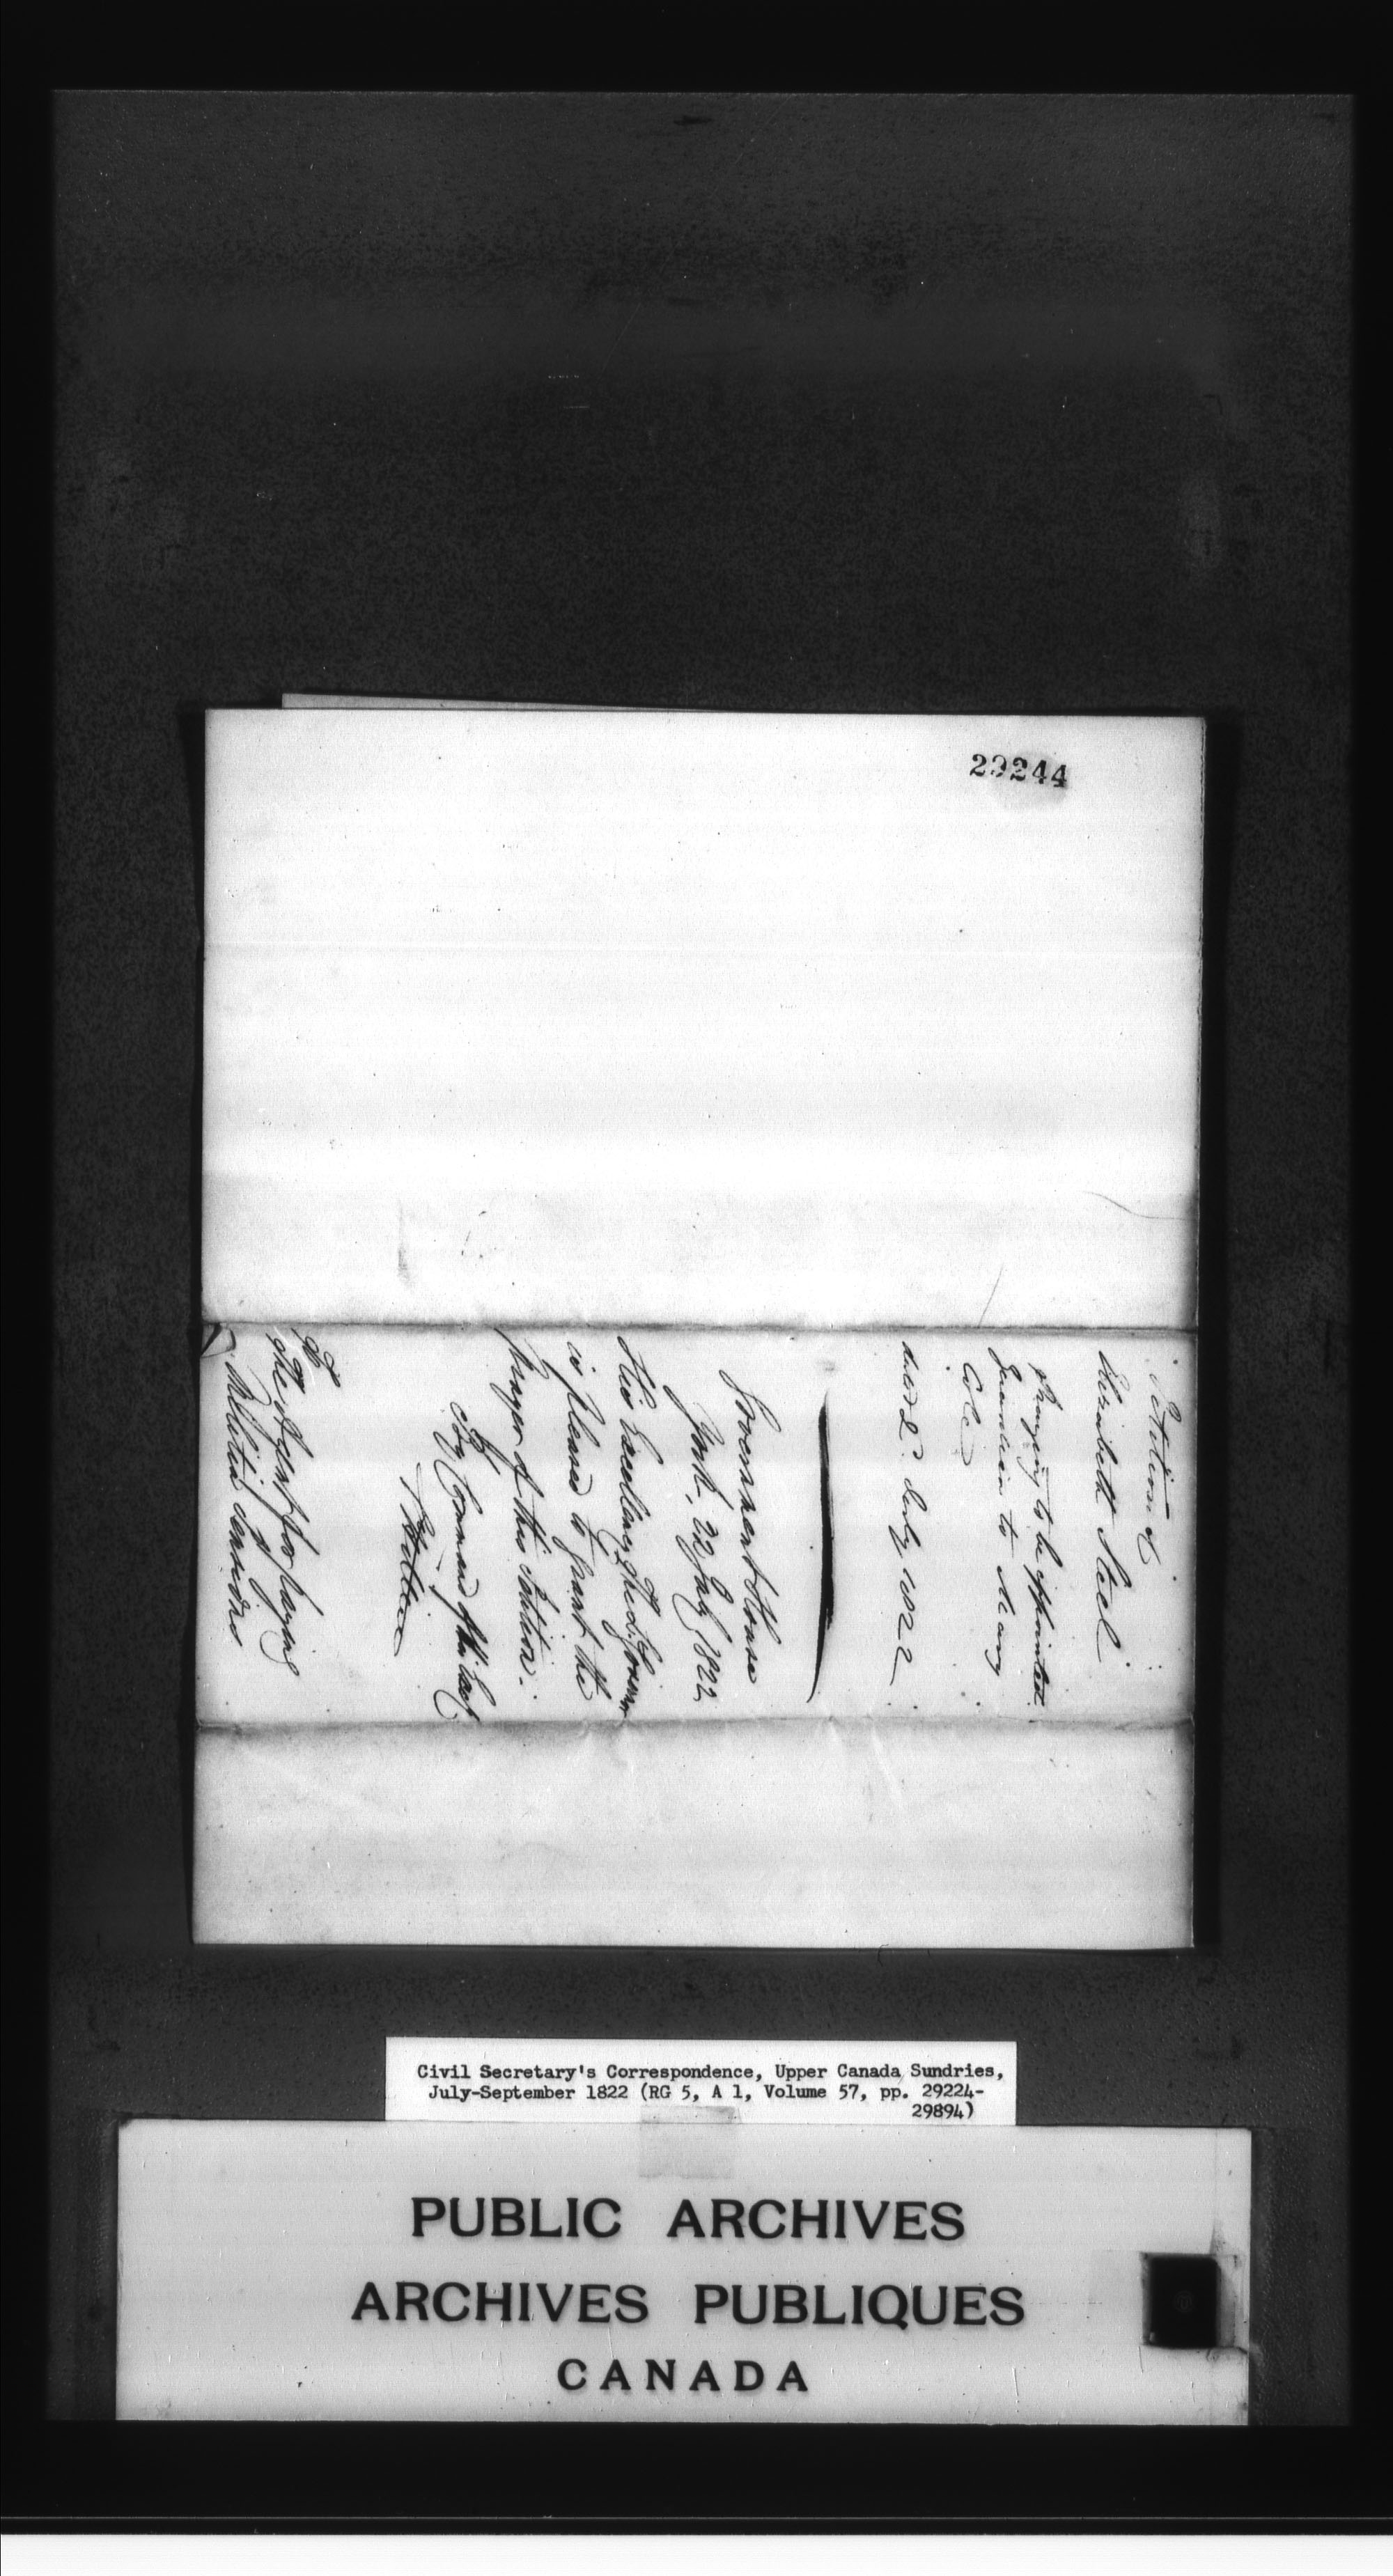 29244
Petition of
Elizabeth Steel
Praying to be appointed
Guardian to Mary
Cole
dated 2d July 1822
Government House
York, 22 July 1822
His Excellency the Lt. Governor
is pleased to grant the
prayer of this Petition.
By Command of His Excy
G Hillier
To
The Agent for paying
Militia Pensions
Civil Secretary's Correspondence, Upper Canada Sundries,
July-September 1822 (RG 5, A 1, Volume 57, pp. 29224-
29894)
PUBLIC ARCHIVES
ARCHIVES PUBLIQUES
CANADA